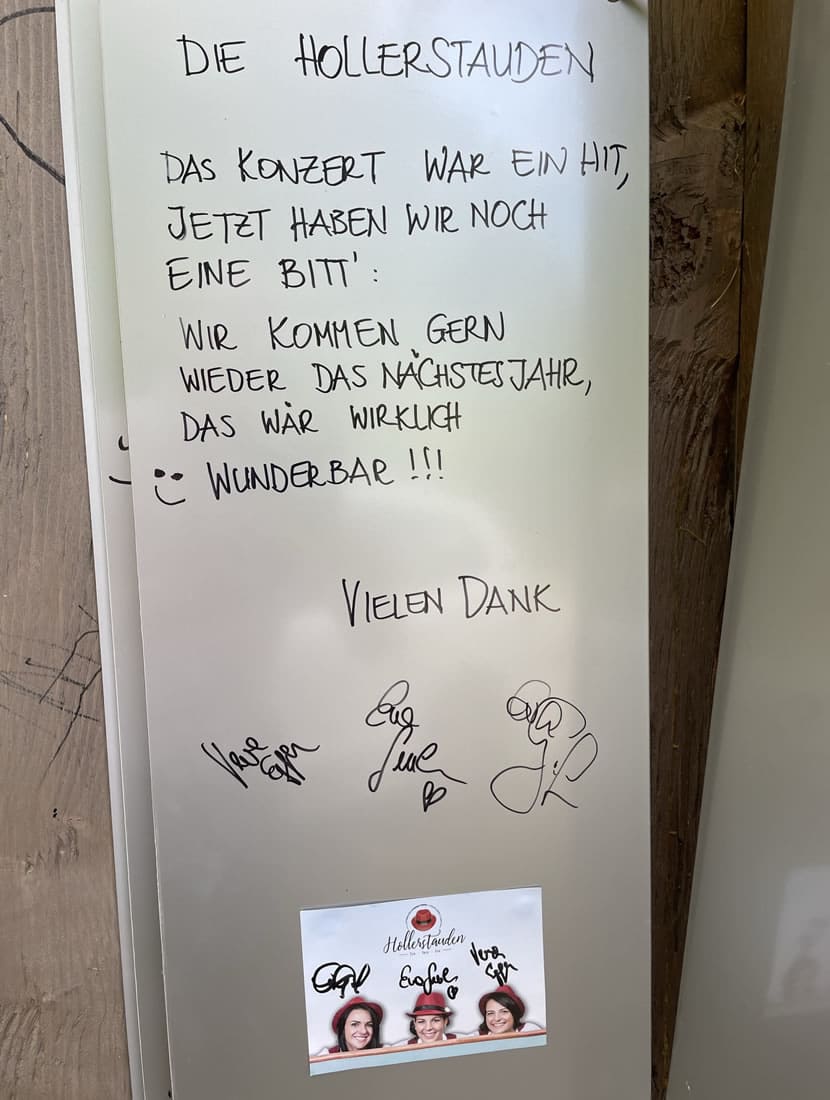 DIE HOLLERSTAUDEN
DAS KONZERT WAR EIN HIT,
JETZT HABEN WIR NOCH
EINE BITT':
WIR KOMMEN GERN
WIEDER DAS NÄCHSTES JAHR,
DAS WÄR WIRKLICH
WUNDERBAR!!!
VIELEN DANK
Hollerstauden